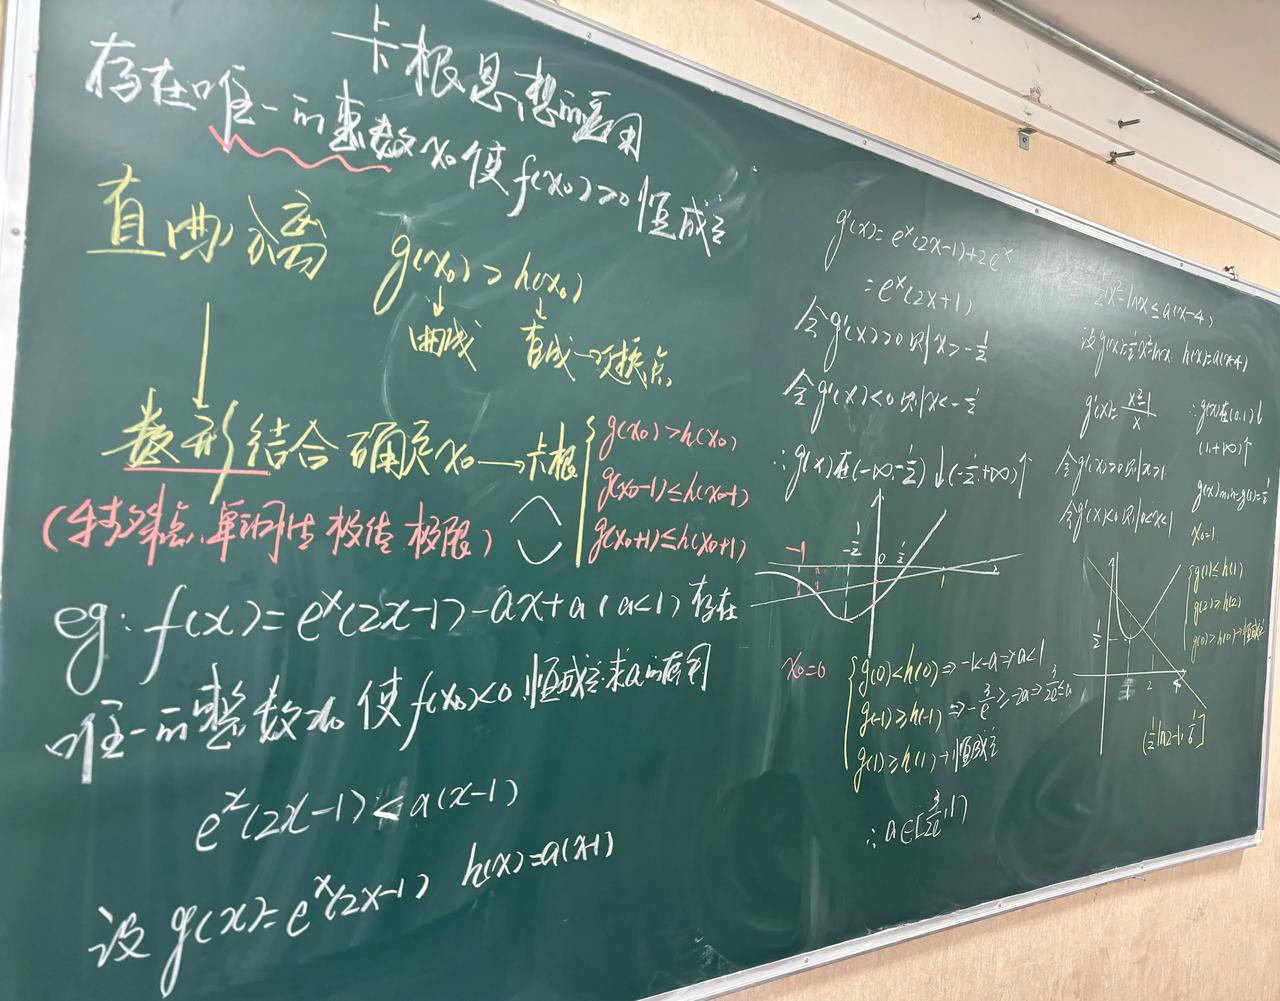 卡根思想的应用
存在唯一的整数x₀使f(x₀)>0恒成立
直曲分离 g(x₀)>h(x₀)
曲线 直线→定点
数形结合确定x₀→卡根
g(x₀)>h(x₀)
g(x₀-1)≤h(x₀-1)
g(x₀+1)≤h(x₀+1)
(特殊点、单调性 极值 极限)
eg: f(x)=eˣ(2x-1)-ax+a (a<1) 存在
唯一的整数x₀ 使f(x₀)<0 恒成立求a的范围
eˣ(2x-1)<a(x-1)
设g(x)=eˣ(2x-1) h(x)=a(x-1)
g'(x)=eˣ(2x-1)+2eˣ
=eˣ(2x+1)
令g'(x)>0则x>-1/2
令g'(x)<0则x<-1/2
∴g(x)在(-∞,-1/2)↓(-1/2,+∞)↑
-1 -1/2 0 1/2 1
x₀=0
g(0)<h(0)⇒-1<-a⇒a<1
g(-1)≥h(-1)⇒-3/e≥-2a⇒3/2e≤a
g(1)≥h(1)→恒成立
∴a∈[3/2e,1)
1/2x²-lnx≤a(x-4)
设g(x)=1/2x²-lnx h(x)=a(x-4)
g'(x)=x²-1/x
∴g(x)在(0,1)↓
(1,+∞)↑
令g'(x)>0则x>1
令g'(x)<0则0<x<1
g(x)min=g(1)=1/2
x₀=1
g(1)≤h(1)
g(2)>h(2)
g(0)>h(0)→恒成立
1/2 1 2 4
(1/2ln2-1,-1/6]